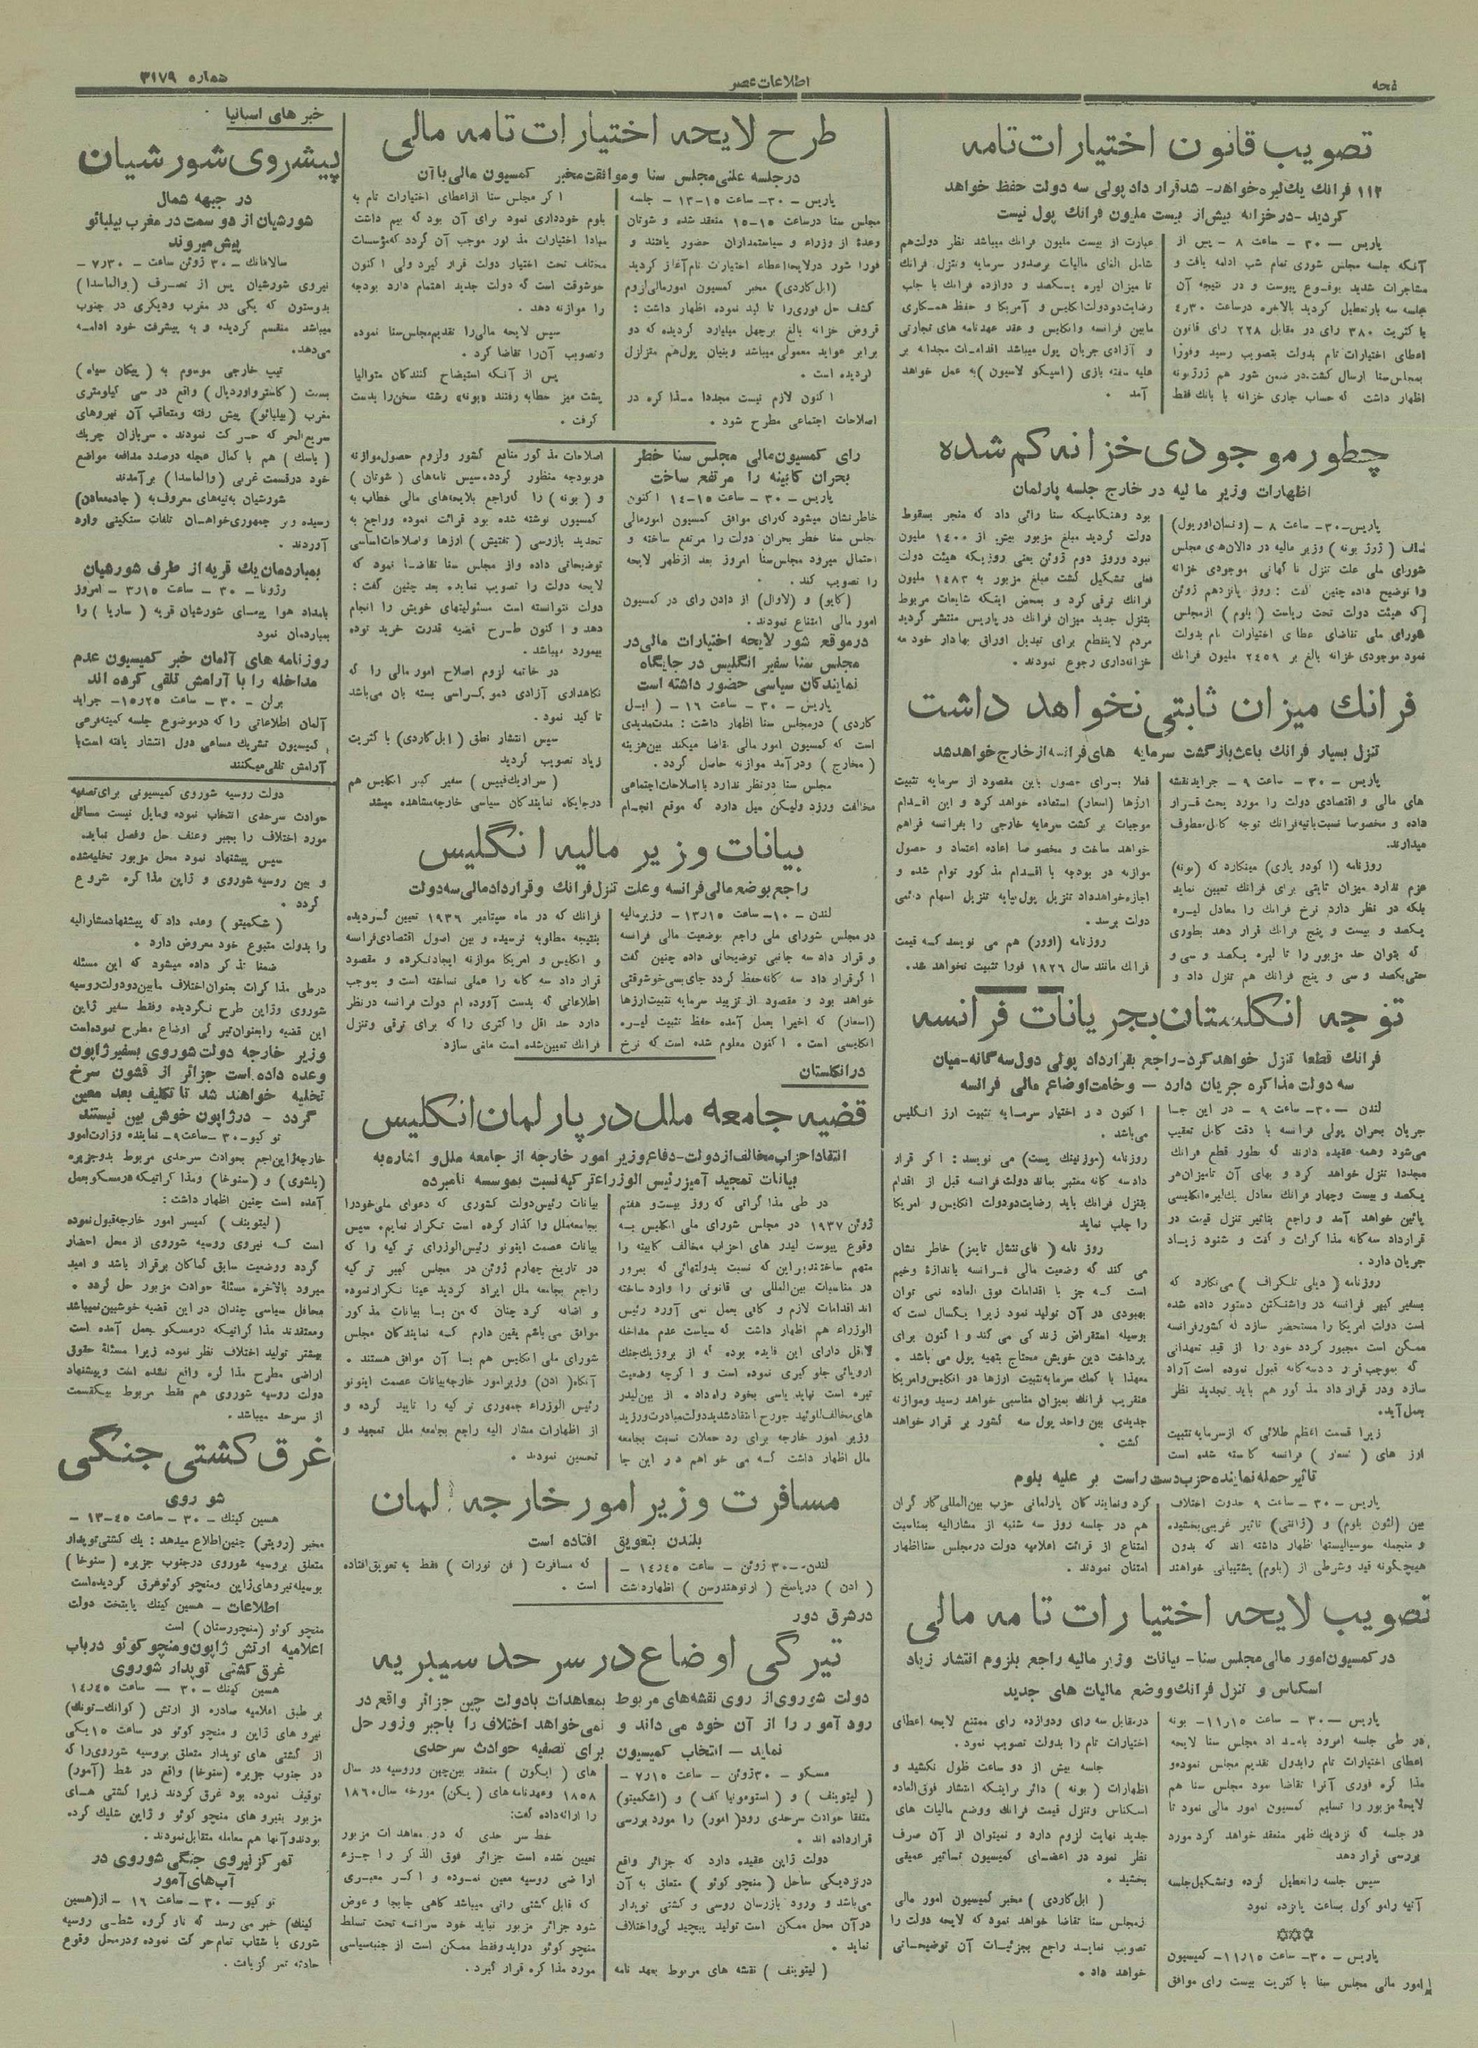 فحه
اطلاعات عصر
شماره ۳۱۷۹
تصویب قانون اختیارات تامه
۱۱۲ فرانك يك ليره خواهد - شد قرار داد پولی سه دولت حفظ خواهد
گردید - در خزانه بیش از بیست ملیون فرانك پول نیست
پاریس — ۳۰ — ساعت ۸ - پس از
آنکه جلسه مجلس شوری تمام شب ادامه یافت و
مشاجرات شدید بوقوع پیوست و در نتیجه آن
جلسه سه بار تعطیل گردید بالاخره در ساعت ۴٫۳۰
با کثریت ۳۸۰ رای در مقابل ۲۲۸ رای قانون
اعطای اختیارات تام بدولت بتصویب رسید وفورا
بمجلس سنا ارسال گشت. در ضمن شور هم ژرژ بونه
اظهار داشت که حساب جاری خزانه با بانك فقط
عبارت از بیست ملیون فرانك میباشد نظر دولت هم
شامل الغای مالیات بر صدور سرمایه و تنزل فرانك
تا میزان لیره یکصد و دوازده فرانك با جلب
رضایت دو دولت انگلیس و آمریکا و حفظ همکاری
مابین فرانسه و انگلیس و عقد عهدنامه های تجارتی
و آزادی جریان پول میباشد اقدامات مجدانه بر
علیه سفته بازی (اسپکو لاسیون) به عمل خواهد
آمد .
چطور موجودی خزانه کم شده
اظهارات وزیر ما لیه در خارج جلسه پارلمان
پاریس - ۳۰ - ساعت ۸ - (ونسان اوریول)
( ژرژ بونه ) وزیر مالیه در دالان های مجلس
شورای ملی علت تنزل نا گهانی موجودی خزانه
را توضیح داده چنین گفت : روز پانزدهم ژوئن
که هیئت دولت تحت ریاست ( بلوم ) از مجلس
شورای ملی تقاضای عطای اختیارات تام بدولت
نمود موجودی خزانه بالغ بر ۲۴۵۹ ملیون فرانك
بود وهنگامیکه سنا رائی داد که منجر بسقوط
دولت گردید مبلغ مزبور بیش از ۱۴۰۰ ملیون
نبود وروز دوم ژوئن یعنی روزیکه هیئت دولت
فعلی تشکیل گشت مبلغ مزبور به ۱۴۸۳ ملیون
فرانك ترقی کرد و بمحض اینکه شایعات مربوط
بتنزل جدید میزان فرانك در پاریس منتشر گردید
مردم لاینقطع برای تبدیل اوراق بهادار خود به
خزانه داری رجوع نمودند .
فرانك میزان ثابتی نخواهد داشت
تنزل بسیار فرانك باعث بازگشت سرمایه های فرانسه از خارج خواهد شد
پاریس — ۳۰ — ساعت ۹ — جراید نقشه
های مالی و اقتصادی دولت را مورد بحث قرار
داده و مخصوصا نسبت بآتیه فرانك توجه کامل معطوف
میدارند.
روزنامه (ا کودو پاری) مینگارد که (بونه)
عزم ندارد میزان ثابتی برای فرانك تعیین نماید
بلکه در نظر دارد نرخ فرانك را معادل لیره
یکصد و بیست و پنج فرانك قرار دهد بطوری
که بتوان حد مزبور را تا لیره یکصد و سی و
حتی یکصد و سی و پنج فرانك هم تنزل داد و
فعلا برای حصول باین مقصود از سرمایه تثبیت
ارزها (اسعار) استفاده خواهد کرد و این اقدام
موجبات بر گشت سرمایه خارجی را بفرانسه فراهم
خواهد ساخت و مخصوصا اعاده اعتماد و حصول
موازنه در بودجه با اقدام مذ کور توام شده و
اجازه خواهد داد تنزیل پول بپایه تنزیل اسهام دائمی
دولت برسد .
روزنامه (اوور) هم می نویسد که قیمت
فرانك مانند سال ۱۹۲۶ فورا تثبیت نخواهد شد.
توجه انگلستان بجریانات فرانسه
فرانك قطعا تنزل خواهد کرد - راجع بقرارداد پولی دول سه گانه - میان
سه دولت مذاکره جریان دارد — وخامت اوضاع مالی فرانسه
لندن — ۳۰ — ساعت ۹ — در این جا
جریان بحران پولی فرانسه با دقت کامل تعقیب
می شود وهمه عقیده دارند که بطور قطع فرانك
مجددا تنزل خواهد کرد و بهای آن تا میزان هر
یکصد و بیست و چهار فرانك معادل یك لیره انگلیسی
پائین خواهد آمد و راجع بتاثیر تنزل قیمت در
قرارداد سه گانه مذا کرات و گفت و شنود زیاد
جریان دارد .
روزنامه ( دیلی تلگراف ) می نگارد که
بسفیر کبیر فرانسه در واشنگتن دستور داده شده
است دولت امریکا را مستحضر سازد که کشور فرانسه
ممکن است مجبور گردد خود را از قید تعهداتی
که بموجب قرار داد سه گانه قبول نموده است آزاد
سازد ودر قرار داد مذ کور هم باید تجدید نظر
بعمل آید.
زیرا قسمت اعظم طلائی که از سرمایه تثبیت
ارز های ( اسعار ) فرانسه کاسته شده است
اکنون در اختیار سرمایه تثبیت ارز انگلیس
می باشد .
روزنامه (مورنینك پست) می نویسد : اگر قرار
داد سه گانه معتبر بماند دولت فرانسه قبل از اقدام
بتنزل فرانك باید رضایت دو دولت انگلیس و امریکا
را جلب نماید
روز نامه ( فای ننشل تایمز) خاطر نشان
می کند که وضعیت مالی فرانسه باندازه وخیم
است که جز با اقدامات فوق العاده نمی توان
بهبودی در آن تولید نمود زیرا یکسال است که
بوسیله استقراض زند گی می کند و ا کنون برای
پرداخت دین خویش محتاج بتهیه پول می باشد .
معهذا با کمك سرمایه تثبیت ارزها در انگلیس وامریکا
عنقریب فرانك بمیزان مناسبی خواهد رسید وموازنه
جدیدی بین واحد پول سه کشور بر قرار خواهد
گشت .
تاثیر حمله نماینده حزب دست راست بر علیه بلوم
پاریس - ۳۰ - ساعت ۹ حدوث اختلاف
بین (لئون بلوم) و (ژانتی) تاثیر غریبی بخشید.
و منجمله سوسیالیستها اظهار داشته اند که بدون
هیچگونه قید وشرطی از (بلوم) پشتیبانی خواهند
کرد ونمایند گان پارلمانی حزب بین المللی کار گران
هم در جلسه روز سه شنبه از مشارالیه بمناسبت
امتناع از قرائت اعلامیه دولت در مجلس سنا اظهار
امتنان نمودند .
تصویب لایحه اختیارات تامه مالی
در کمیسیون امور مالی مجلس سنا - بیانات وزیر مالیه راجع بلزوم انتشار زیاد
اسکناس و تنزل فرانك ووضع مالیات های جدید
پاریس — ۳۰ — ساعت ۱۱٫۱۵ - بونه
در طی جلسه امروز بامداد مجلس سنا لایحه
اعطای اختیارات تام رابدول تقدیم مجلس نموده و
مذا کره فوری آنرا تقاضا نمود مجلس سنا هم
لایحه مزبور را تسلیم کمسیون امور مالی نمود تا
در جلسه که نزدیك ظهر منعقد خواهد کرد مورد
بررسی قرار دهد
سپس جلسه راتعطیل کرده وتشکیل جلسه
آتیه رامو کول بساعت پانزده نمود
✡✡✡
پاریس — ۳۰ — ساعت ۱۱٫۱۵ - کمیسیون
امور مالی مجلس سنا با کثریت بیست رای موافق
در مقابل سه رای ودوازده رای ممتنع لایحه اعطای
اختیارات تام را بدولت تصویب نمود .
جلسه بیش از دو ساعت طول نکشید و
اظهارات ( بونه ) دائر براینکه انتشار فوق العاده
اسکناس وتنزل قیمت فرانك ووضع مالیات های
جدید نهایت لزوم دارد و نمیتوان از آن صرف
نظر نمود در اعضای کمیسیون تاثیر عمیقی
بخشید .
( ابل کاردی ) مخبر کمیسیون امور مالی
زمجلس سنا تقاضا خواهد نمود که لایحه دولت را
تصویب نماید راجع بجزئیات آن توضیحاتی
خواهد داد .
طرح لایحه اختیارات تامه مالی
در جلسه علنی مجلس سنا وموافقت مخبر کمسیون مالی با آن
پاریس — ۳۰ - ساعت ۱۵-۱۳ - جلسه
مجلس سنا درساعت ۱۵-۱۵ منعقد شده و شوتان
وعدهٔ از وزراء و سیاستمداران حضور یافتند و
فورا شور درلایحه اعطاء اختیارت تام آغاز گردید
(ابل کاردی) مخبر کمسیون امور مالی لزوم
کشف حل فوری را تا کید نموده اظهار داشت :
قروض خزانه بالغ برچهل میلیارد گردیده که دو
برابر عواید معمولی میباشد وبنیان پول هم متزلزل
گردیده است .
ا کنون لازم نیست مجددا مذا کره در
اصلاحات اجتماعی مطرح شود .
ا گر مجلس سنا از اعطای اختیارات تام به
بلوم خودداری نمود برای آن بود که بیم داشت
مبادا اختیارات مذ کور موجب آن گردد که مؤسسات
مختلف تحت اختیار دولت قرار گیرد ولی ا کنون
خوشوقت است که دولت جدید اهتمام دارد بودجه
را موازنه دهد .
سپس لایحه مالی را تقدیم مجلس سنا نموده
وتصویب آن را تقاضا کرد .
پس از آنکه استیضاح کنندگان متوالیا
پشت میز خطابه رفتند «بونه» رشته سخن را بدست
گرفت .
رای کمسیون مالی مجلس سنا خطر
بحران کابینه را مرتفع ساخت
پاریس — ۳۰ — ساعت ۱۵-۱۴ ا کنون
خاطر نشان میشود که رای موافق کمسیون امور مالی
مجلس سنا خطر بحران دولت را مرتفع ساخته و
احتمال میرود مجلس سنا امروز بعد از ظهر لایحه
را تصویب کند .
(کایو) و (لاوال) از دادن رای در کمسیون
امور مالی امتناع نمودند .
در موقع شور لایحه اختیارات مالی در
مجلس سنا سفیر انگلیس در جایگاه
نمایندگان سیاسی حضور داشته است
پاریس — ۳۰ — ساعت ۱۶ — ( ابل
کاردی ) در مجلس سنا اظهار داشت : مدت مدیدی
است که کمسیون امور مالی تقاضا میکند بین هزینه
( مخارج ) ودرآمد موازنه حاصل گردد .
مجلس سنا در نظر ندارد با اصلاحات اجتماعی
مخالفت ورزد ولیکن میل دارد که موقع انجام
اصلاحات مذ کور منافع کشور ولزوم حصول موازنه
در بودجه منظور گردد. سپس نامه های (شوتان )
و ( بونه ) را که راجع بلایحه های مالی خطاب به
کمسیون نوشته شده بود قرائت نموده وراجع به
تحدید بازرسی (تفتیش ) ارزها واصلاحات اساسی
توضیحاتی داده واز مجلس سنا تقاضا نمود که
لایحه دولت را تصویب نماید. بعد چنین گفت :
دولت نتوانسته است مسئولیتهای خویش را انجام
دهد و ا کنون طرح قضیه قدرت خرید توده
بیمورد میباشد .
در خاتمه لزوم اصلاح امور مالی را که
نگاهداری آزادی دمو کراسی بسته بان می باشد
تا کید نمود .
سپس انتشار نطق ( ابل کاردی) با کثریت
زیاد تصویب گردید
( سراریك فیپس ) سفیر کبیر انگلیس هم
در جایگاه نمایندگان سیاسی خارجه مشاهده میشد
بیانات وزیر مالیه انگلیس
راجع بوضع مالی فرانسه وعلت تنزل فرانك وقرارداد مالی سه دولت
لندن — ۱۰ — ساعت ۱۳٫۱۵ — وزیر مالیه
در مجلس شورای ملی راجع بوضعیت مالی فرانسه
و قرار داد سه جانبی توضیحاتی داده چنین گفت
ا گر قرار داد سه گانه حفظ گردد جای بسی خوشوقتی
خواهد بود و مقصود از تزیید سرمایه تثبیت ارزها
(اسعار) که اخیرا بعمل آمده حفظ تثبیت لیره
انگلیسی است . ا کنون معلوم شده است که نرخ
فرانك که در ماه سپتامبر ۱۹۳۶ تعیین گردیده
بنتیجه مطلوبه نرسیده و بین اصول اقتصادی فرانسه
و انگلیس و امریکا موازنه ایجاد نکرده و مقصود
قرار داد سه گانه را عملی نساخته است و بموجب
اطلاعاتی که بدست آورده ام دولت فرانسه در نظر
دارد حد اقل وا کثری را که برای ترقی وتنزل
فرانك تعیین شده است ملغی سازد
در انگلستان
قضیه جامعه ملل در پارلمان انگلیس
انتقاد احزاب مخالف از دولت - دفاع وزیر امور خارجه از جامعه ملل و اشاره به
بیانات تمجید آمیز رئیس الوزراء ترکیه نسبت بموسسه نامبرده
در طی مذا کراتی که روز بیست و هفتم
ژوئن ۱۹۳۷ در مجلس شورای ملی انگلیس به
وقوع پیوست لیدر های احزاب مخالف کابینه را
متهم ساختند بر این که نسبت بدولتهائی که بمرور
در مناسبات بین المللی بی قانونی را وارد ساخته
اند اقدامات لازم و کافی بعمل نمی آورد رئیس
الوزراء هم اظهار داشت که سیاست عدم مداخله
لااقل دارای این فایده بوده که از بروز یك جنك
اروپائی جلو گیری نموده است و ا گرچه وضعیت
تیره است نباید یاسی بخود راه داد . از بین لیدر
های مخالف لوئید جورج انتقاد شدید دولت مبادرت ورزید
وزیر امور خارجه برای رد حملات نسبت بجامعه
ملل اظهار داشت که می خواهم در این جا
بیانات رئیس دولت کشوری که دعوای ملی خودرا
بجامعه ملل وا گذار کرده است تکرار نمایم. سپس
بیانات عصمت اینونو رئیس الوزرای تر کیه را که
در تاریخ چهارم ژوئن در مجلس کبیر تر کیه
راجع بجامعه ملل ایراد گردید عینا تکرار نموده
و اضافه کرد چنان که من بسا بیانات مذ کور
موافق می باشم یقین دارم که نمایندگان مجلس
شورای ملی انگلیس هم بسا آن موافق هستند .
آنگاه( ادن) وزیر امور خارجه بیانات عصمت اینونو
رئیس الوزراء جمهوری تر کیه را تایید کرده و
از اظهارات مشار الیه راجع بجامعه ملل تمجید و
تحسین نمودند .
مسافرت وزیر امور خارجه آلمان
بلندن بتعویق افتاده است
لندن — ۳۰ ژوئن — ساعت ۱۴٫۴۵ —
( ادن ) در پاسخ ( ارتوهندرسن ) اظهار داشت
که مسافرت ( فن نورات ) فقط به تعویق افتاده
است .
در شرق دور
تیرگی اوضاع در سرحد سیبریه
دولت شوروی از روی نقشه های مربوط بمعاهدات بادولت چین جزائر واقع در
رود آمور را از آن خود می داند و نمی خواهد اختلاف را باجبر وزور حل
نماید — انتخاب کمیسیون برای تصفیه حوادث سرحدی
مسکو - ۳۰ ژوئن — ساعت ۷٫۱۵ -
(لیتوینف ) و (استومونیا کف ) و (اشکمیتو)
متفقا حوادث سرحدی رود( امور) را مورد بررسی
قرار داده اند .
دولت ژاپن عقیده دارد که جزائر واقع
در نزدیکی ساحل ( منچو کوئو ) متعلق به آن
می باشد و ورود بازرسان روسی و کشتی توپدار
در آن محل ممکن است تولید پیچید گی و اختلاف
نماید .
( لیتوینف ) نقشه های مربوط بعهد نامه
های ( ایگون ) منعقد بین چین وروسیه در سال
۱۸۵۸ وعهدنامه های (پکن) مورخه سال ۱۸۶۰
را ارائه داده گفت:
خط سر حدی که در معاهدات مزبور
تعیین شده است جزائر فوق الذ کر را جزء
اراضی روسیه معین نموده و ا گر معبری
که قابل کشتی رانی میباشد گاهی جابجا و عوض
شود جزائر مزبور نباید خود سرانه تحت تسلط
منچو کوئو در اید وفقط ممکن است از جنبه سیاسی
مورد مذا کره قرار گیرد .
خبر های اسپانیا
پیشروی شورشیان
در جبهه شمال
شورشیان از دو سمت در مغرب بیلبائو
پیش میروند
سالامانك — ۳۰ ژوئن ساعت — ۷٫۳۰ —
نیروی شورشیان پس از تصرف (والماسدا)
بدوستون که یکی در مغرب ودیگری در جنوب
میباشد منقسم گردیده و به پیشرفت خود ادامه
می دهد.
تیپ خارجی موسوم به ( پیکان سیاه )
بسمت ( کاسترواوردیال) واقع در سی کیلومتری
مغرب (بیلبائو) پیش رفته ومتعاقب آن نیروهای
سریع الحر که حر کت نمودند . سربازان چریك
( باسك ) هم با کمال عجله درصدد مدافعه مواضع
خود درقسمت غربی ( والماسدا ) برآمدند
شورشیان به تپه های معروف به (جاده معادن)
رسیده وبر جمهوری خواهان تلفات سنگینی وارد
آوردند .
بمباردمان يك قریه از طرف شورشیان
رژونا — ۳۰ — ساعت ۳٫۱۵ — امروز
بامداد هوا پیمای شورشیان قریه ( ساریا ) را
بمباردمان نمود
روزنامه های آلمان خبر کمیسیون عدم
مداخله را با آرامش تلقی کرده اند
برلن — ۳۰ — ساعت ۱۵٫۲۵ - جراید
آلمان اطلاعاتی را که در موضوع جلسه کمیته فرعی
کمیسیون تشریك مساعی دول انتشار یافته است با
آرامش تلقی میکنند
دولت روسیه شوروی کمیسیونی برای تصفیه
حوادث سرحدی انتخاب نموده ومایل نیست مسائل
مورد اختلاف را بجبر وعنف حل وفصل نماید.
سپس پیشنهاد نمود محل مزبور تخلیه شده
و بین روسیه شوروی و ژاپن مذا کره شروع
گردد .
( شکمیتو ) وعده داد که پیشنهاد مشارالیه
را بدولت متبوع خود معروض دارد .
ضمنا تذ کر داده میشود که این مسئله
در طی مذا کرات بعنوان اختلاف مابین دو دولت روسیه
شوروی وژاپن طرح نگردیده وفقط سفیر ژاپن
این قضیه رابعنوان تیر گی اوضاع مطرح نموده است
وزیر خارجه دولت شوروی بسفیر ژاپون
وعده داده است جزائر از قشون سرخ
تخلیه خواهند شد تا تکلیف بعد معین
گردد - در ژاپون خوش بین نیستند
تو کیو - ۳۰ - ساعت ۹ - نماینده وزارت امور
خارجه ژاپن راجع بحوادث سرحدی مربوط بدو جزیره
(بلشوی) و (سنوخا) ومذا کراتیکه در مسکو بعمل
آمده است چنین اظهار داشت :
( لیتوینف ) کمیسر امور خارجه قبول نموده
است که نیروی روسیه شوروی از محل احضار
گردد ووضعیت سابق کماکان برقرار باشد و امید
میرود بالاخره مسئلهٔ حوادث مزبور حل گردد .
محافل سیاسی چندان در این قضیه خوشبین نمیباشد
ومعتقدند مذا کراتیکه در مسکو بعمل آمده است
بیشتر تولید اختلاف نظر نموده زیرا مسئلهٔ حقوق
اراضی مطرح مذا کره واقع نشده است وپیشنهاد
دولت روسیه شوروی هم فقط مربوط بیکقسمت
از سرحد میباشد .
غرق کشتی جنگی
شوروی
هسین کینك — ۳۰ — ساعت ۱۳-۴۵ —
مخبر (رویتر) چنین اطلاع میدهد : يك کشتی توپدار
متعلق بروسیه شوروی در جنوب جزیره ( سنوخا )
بوسیله نیروهای ژاپن ومنچو کوئو غرق گردیده است
اطلاعات — هسین کینك پایتخت دولت
منچو کوئو (منچورستان) است
اعلامیه ارتش ژاپون و منچو کوئو در باب
غرق کشتی توپدار شوروی
هسین کینك — ۳۰ — ساعت ۱۴٫۴۵
بر طبق اعلامیه صادره از ارتش (کوانك - تونك)
نیرو های ژاپن و منچو کوئو در ساعت ۱۵ یکی
از کشتی های توپدار متعلق بروسیه شوروی را که
در جنوب جزیره (سنوخا) واقع در شط (آمور)
توقیف نموده بود غرق کردند زیرا کشتی های
مزبور بنیرو های منچو کوئو و ژاپن شلیك کرده
بودند وآنها هم معامله متقابل نمودند .
تمرکز نیروی جنگی شوروی در
آب های آمور
تو کیو — ۳۰ — ساعت ۱۶ — از (هسین
کینك) خبر می رسد که ناو گروه شطی روسیه
شوری با شتاب تمام حر کت نموده و در محل وقوع
حادثه تمر کز یافت .